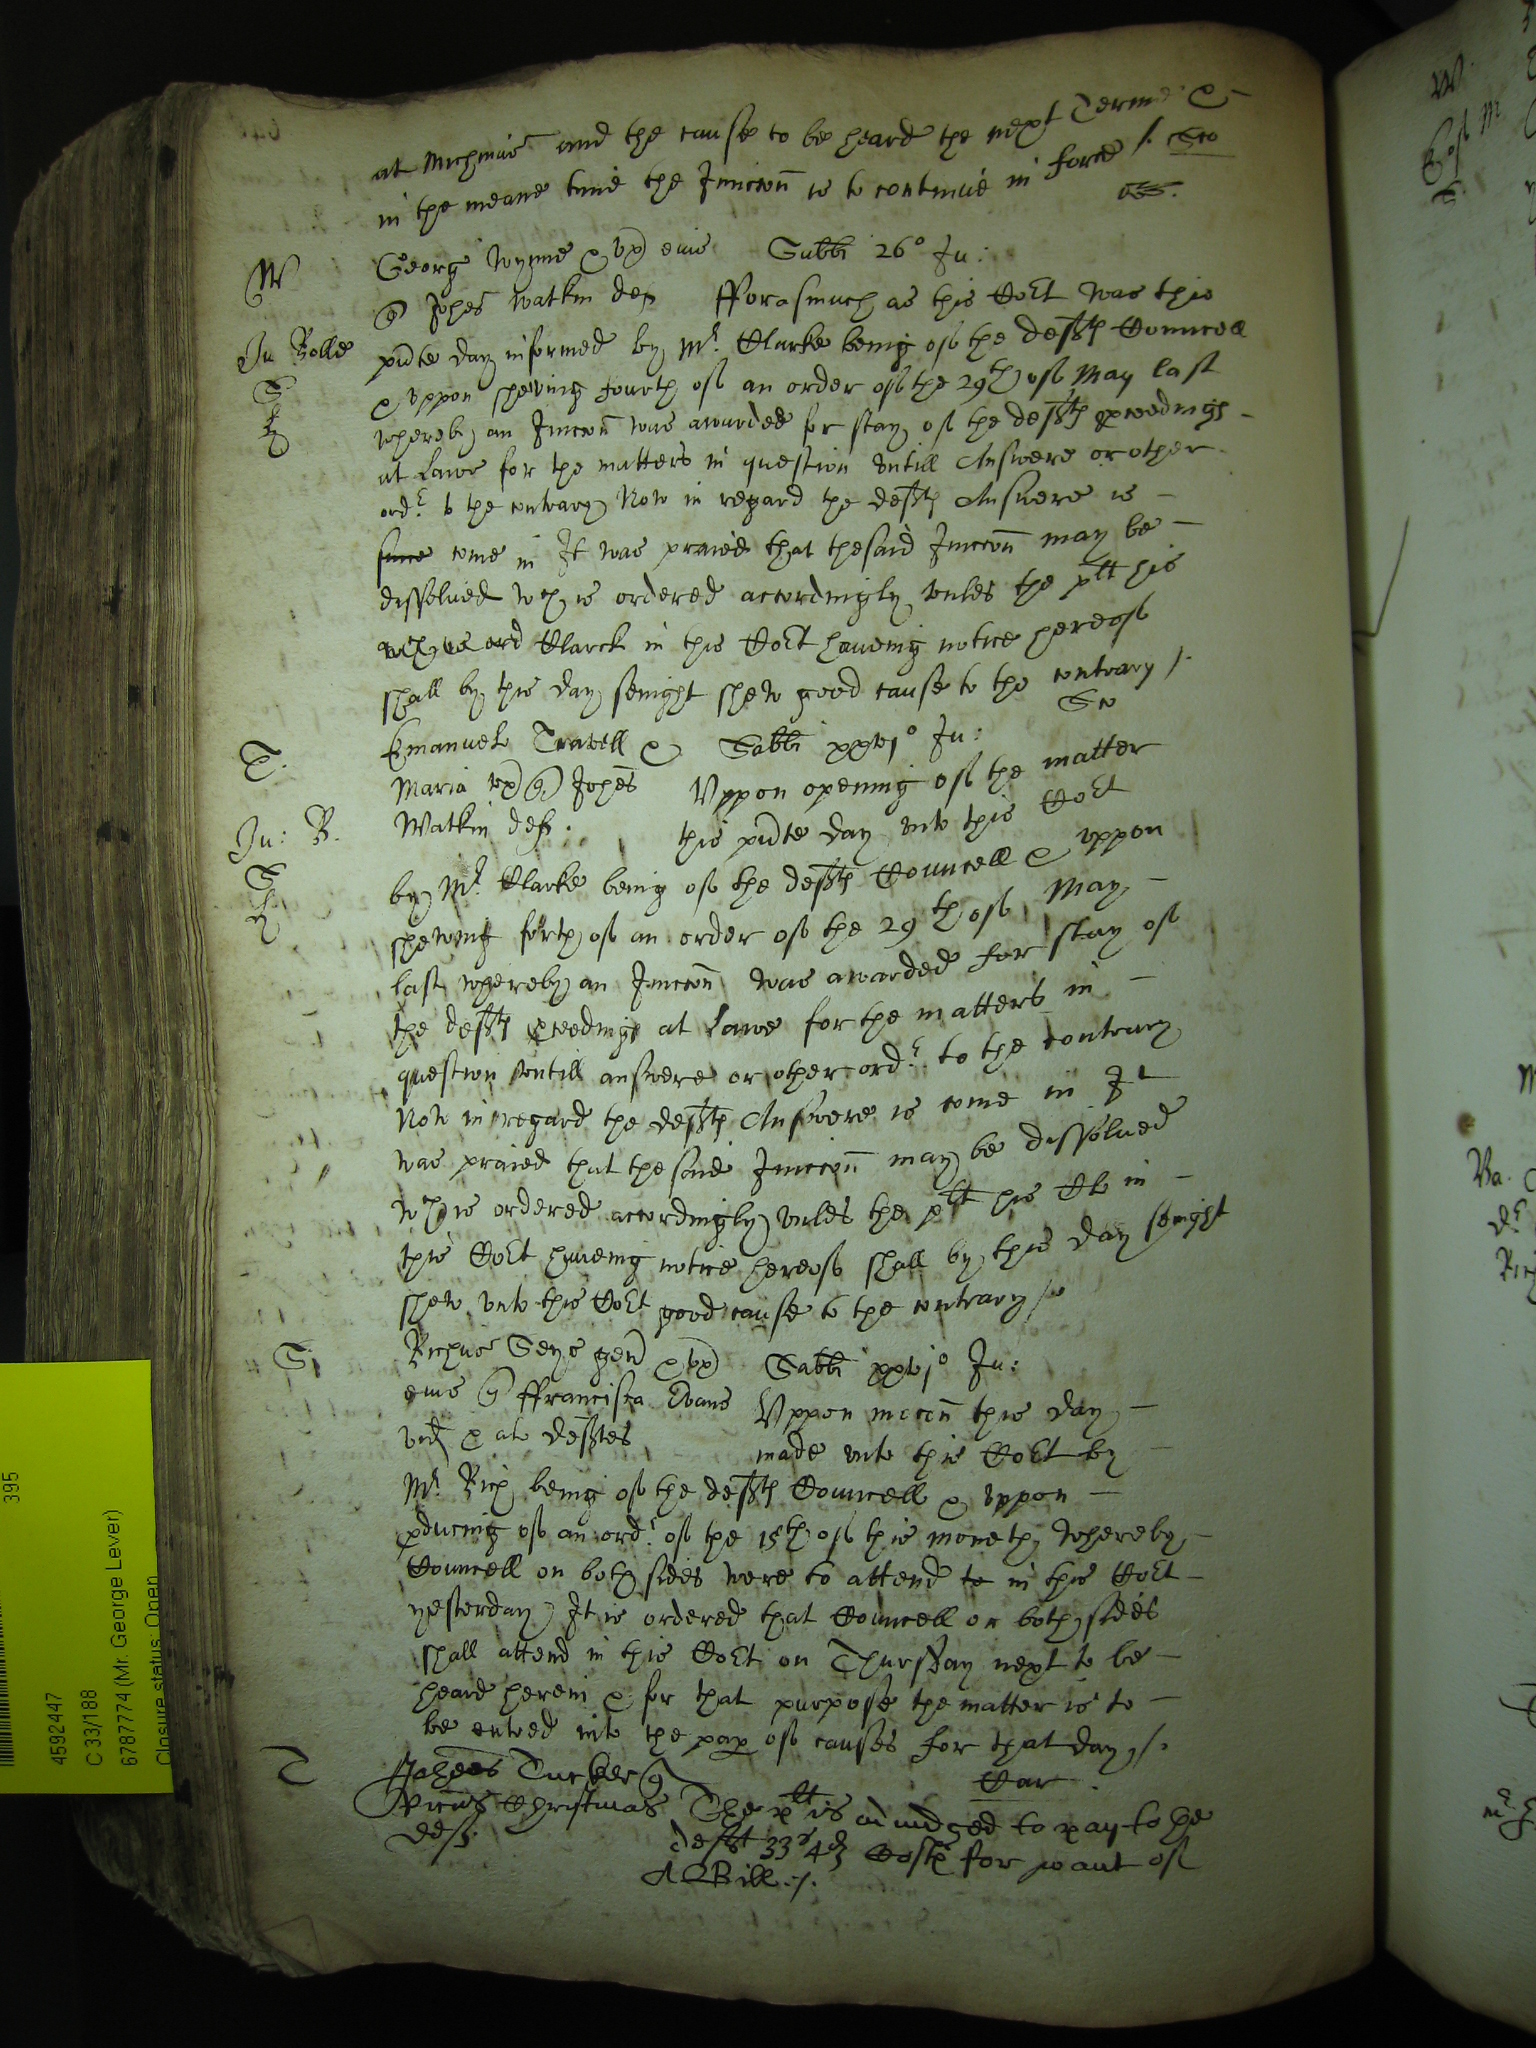 at Mich'mas and the cause to be heard the next Terme &
in the meane time the Iniuccon is to continue in force /. Sco
W
George Wynne & vx' eius Sabbti 26° Ju:
con Joh'es Watkin def
fforasmuch as this Court was this
Ju Rolle
p'nte day informed by Mr. Clarke being of the defts Councell
& vppon shewing fourth of an order of the 29th of May last
whereby an Iniuccon was awarded for stay of the defts p'ceedings
at Lawe for the matters in question vntill Answere or other
ordr to the contrary Now in regard the defts Answere is
since come in It was praied that the said Iniuccon may be
dissolued wch is ordered accordingly vnles the plt his
Clarck in this Court haueing notice hereof
shall by this day senight shew good cause to the contrary /.
Sco
T.
Emanuel Travell & Sabbti xxvjo Ju:
Maria vx' con Joh'es
Vppon opening of the matter
Ju: R.
Watkin def.
this p'nte day vnto this Court
by Mr. Clarke being of the defts Councell & vppon
shewing forth of an order of the 29th of May
last whereby an Iniuccon was awarded for stay of
the defts p'ceedings at Lawe for the matters in
question vntill answere or other ordr. to the contrary
Now in regard the defts Answere is come in It
was praied that the said Iniuccon may be dissolued
wch is ordered accordingly vnles the plt his Clk in
this Court haueing notice hereof shall by this day senight
shew vnto this Court good cause to the contrary /.
S
Rich'us Seys gen' & vx' Sabbti xxvjo Ju:
eius con ffrancisca Evans
Vppon mocon this day
vid & al' deftes
made vnto this Court by
Mr Rich being of the defts Councell & vppon
p'ducing of an ordr. of the 15th of this moneth whereby
Councell on both sides were to attend te in this Court
yesterday It is ordered that Councell on both sides
shall attend in this Court on Thursday next to be
heard herein & for that purpose the matter is to
be entred into the pap' of causes for that day /.
T
Johees Tucker con
Car
Christmas
The plt is adiudged to pay to the
def.
deft 33s 4d Costs for want of
A Bill ./.
4592447
C 33/188
6787774 (Mr. George Lever)
Closure status: Open
395